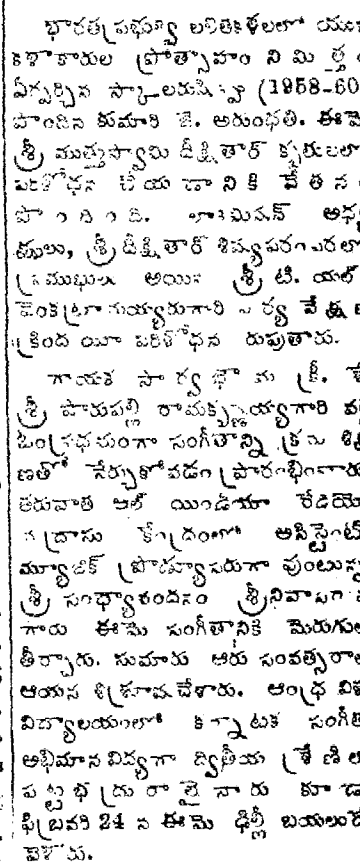 భారత ప్రభుత్వం లలితకళలలో యువ
కళాకారుల ప్రోత్సాహం నిమిత్తం
ఏర్పర్చిన స్కాలరుషిప్పు (1958-60
పొందిన కుమారి జె. అరుంధతి. ఈమె
శ్రీ ముత్తుస్వామి దీక్షితార్ కృతులలో
పరిశోధన చేయడానికి వేతన
పొందింది.
శ్రీ దీక్షితార్ శిష్యపరంపరలో
ప్రముఖులు అయిన శ్రీ టి. యల్
వెంకట్రామయ్యరుగారి పర్యవేక్షణ
క్రింద యీ పరిశోధన
గాయక సార్వభౌమ కీ.
శ్రీ పారుపల్లి రామకృష్ణయ్యగారి వద్ద
సంగీతాన్ని క్రమ శిక్ష
ణతో నేర్చుకోవడం ప్రారంభించారు
తరువాత ఆల్ యిండియా రేడియో
మద్రాసు కేంద్రంలో అసిస్టెంట్
మ్యూజిక్ ప్రొడ్యూసరుగా వుంటున్న
శ్రీ సంధ్యావందనం శ్రీనివాసరావు
గారు ఈమె సంగీతానికి మెరుగులు
తీర్చారు. సుమారు ఆరు సంవత్సరాలు
ఆయన శిశ్రూష చేశారు. ఆంధ్ర విశ్వ
విద్యాలయంలో కర్నాటక సంగీత
అభిమానవిద్యగా ద్వితీయ శ్రేణిలో
పట్టభద్రురాలైనారు కూడా
ఫిబ్రవరి 24 న ఈమె ఢిల్లీ బయలుదే
వెళారు.